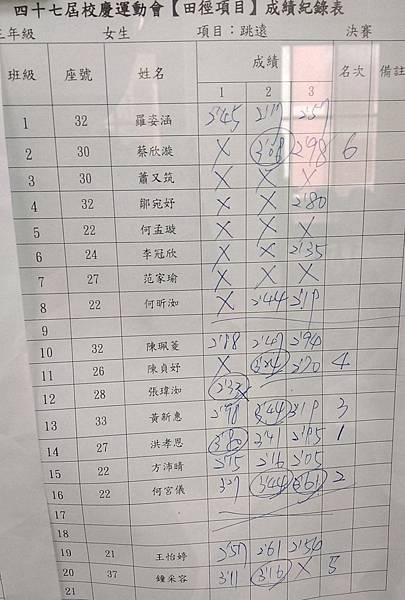 四十七屆校慶運動會【田徑項目】成績紀錄表
三年級 女生 項目：跳遠 決賽
班級 座號 姓名 成績 名次 備註
1 2 3
1 32 羅姿涵
2 30 蔡欣漩 X 3'08 2'98 6
3 30 蕭又筑 X X X
4 32 鄒宛妤 X X 2'80
5 22 何孟璇 X X X
6 24 李冠欣 X X 2'35
7 27 范家瑜 X X X
8 22 何昕洳 X 2'44
9
10 32 陳珮菱 2'47 2'94
11 26 陳貞妤 X 2'70 4
12 28 張瑋洳
13 33 黃新惠 2'98 3'44 3'19 3
14 27 洪孝恩 3'41 1
15 22 方沛晴 2'75 2'16
16 22 何宮儀 3'27 3'44 3'61 2
17
18
19 21 王怡婷 2'57 2'61 2'56
20 37 鐘采容 3'11 3'16 X 5
21